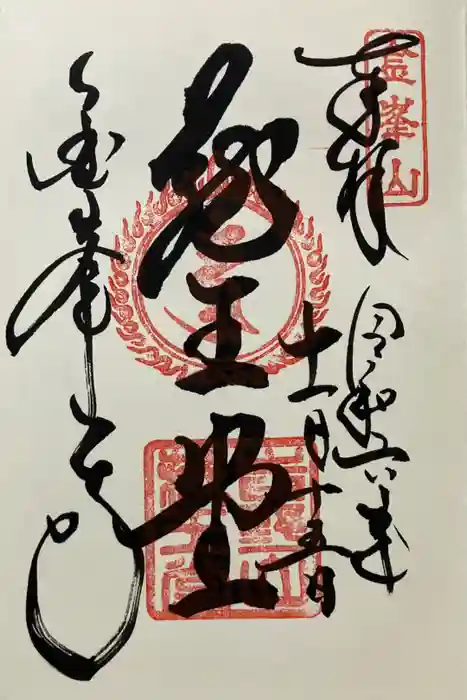 奉拝
令和六年
十一月十五日
蔵王堂
金峯山寺
金峯山